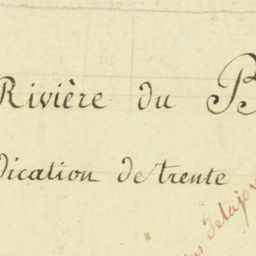 Rivière du B
dication de trente